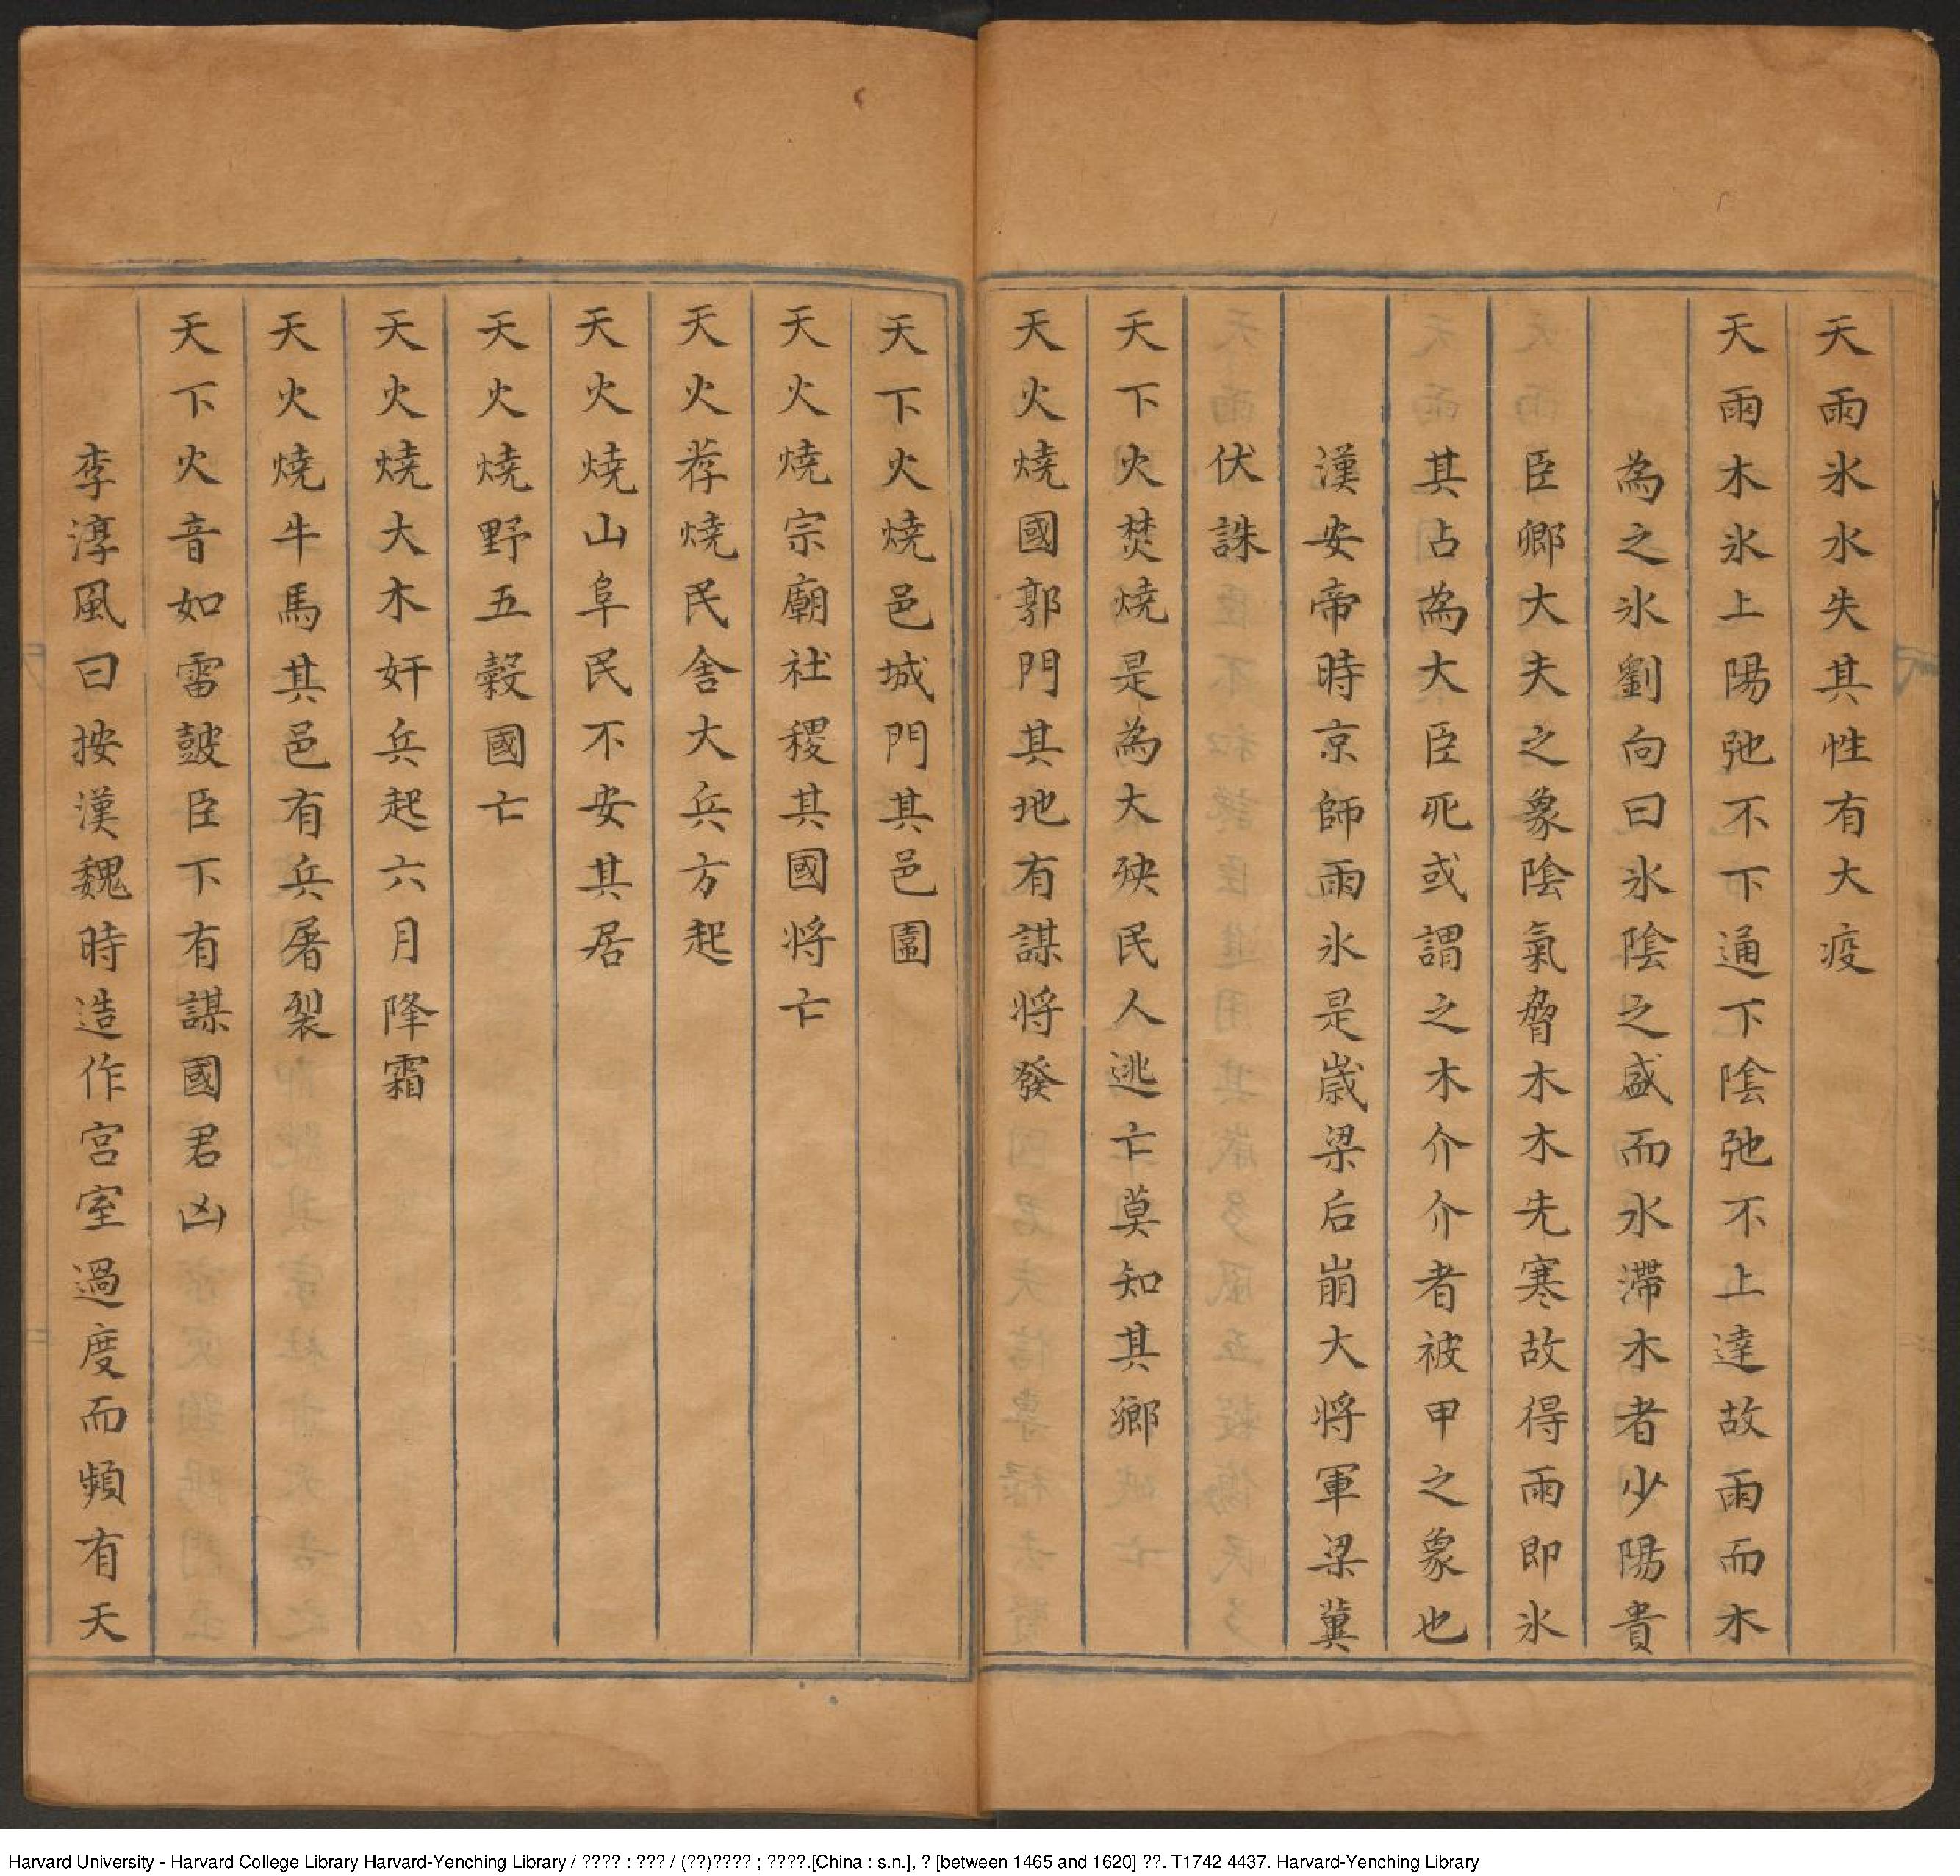 天雨氷水失其性有大疫
天雨木氷上陽弛不下通下陰弛不上達故雨而木
為之氷劉向曰氷陰之盛而水滯木者少陽貴
臣卿大夫之象陰氣脅木木先寒故得雨即氷
其占為大臣死或謂之木介介者被甲之象也
漢安帝時京師雨氷是歲梁后崩大将軍梁冀
伏誅
天下火焚燒是為大殃民人逃亡莫知其鄉
天火燒國郭門其地有謀将發
天下火燒邑城門其邑圍
天火燒宗廟社稷其國将亡
天火荐燒民舍大兵方起
天火燒山阜民不安其居
天火燒野五穀國亡
天火燒大木奸兵起六月降霜
天火燒牛馬其邑有兵屠裂
天下火音如雷鼓臣下有謀國君凶
李淳風曰按漢魏時造作宫室過度而頻有天
Harvard University - Harvard College Library Harvard-Yenching Library / ???? : ??? / (??)???? ; ????.[China : s.n.], ? [between 1465 and 1620] ??. T1742 4437. Harvard-Yenching Library